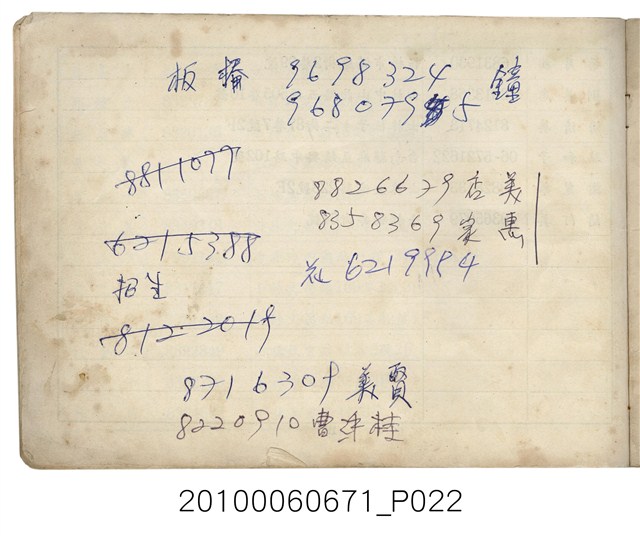 板 輪 9698324 鐘
968079 5
8811077
8826679 店 美
8358369 家 惠
6215388
花 6219984
招生
812-2019
8716309 美賢
8220910 曹 桂
20100060671_P022